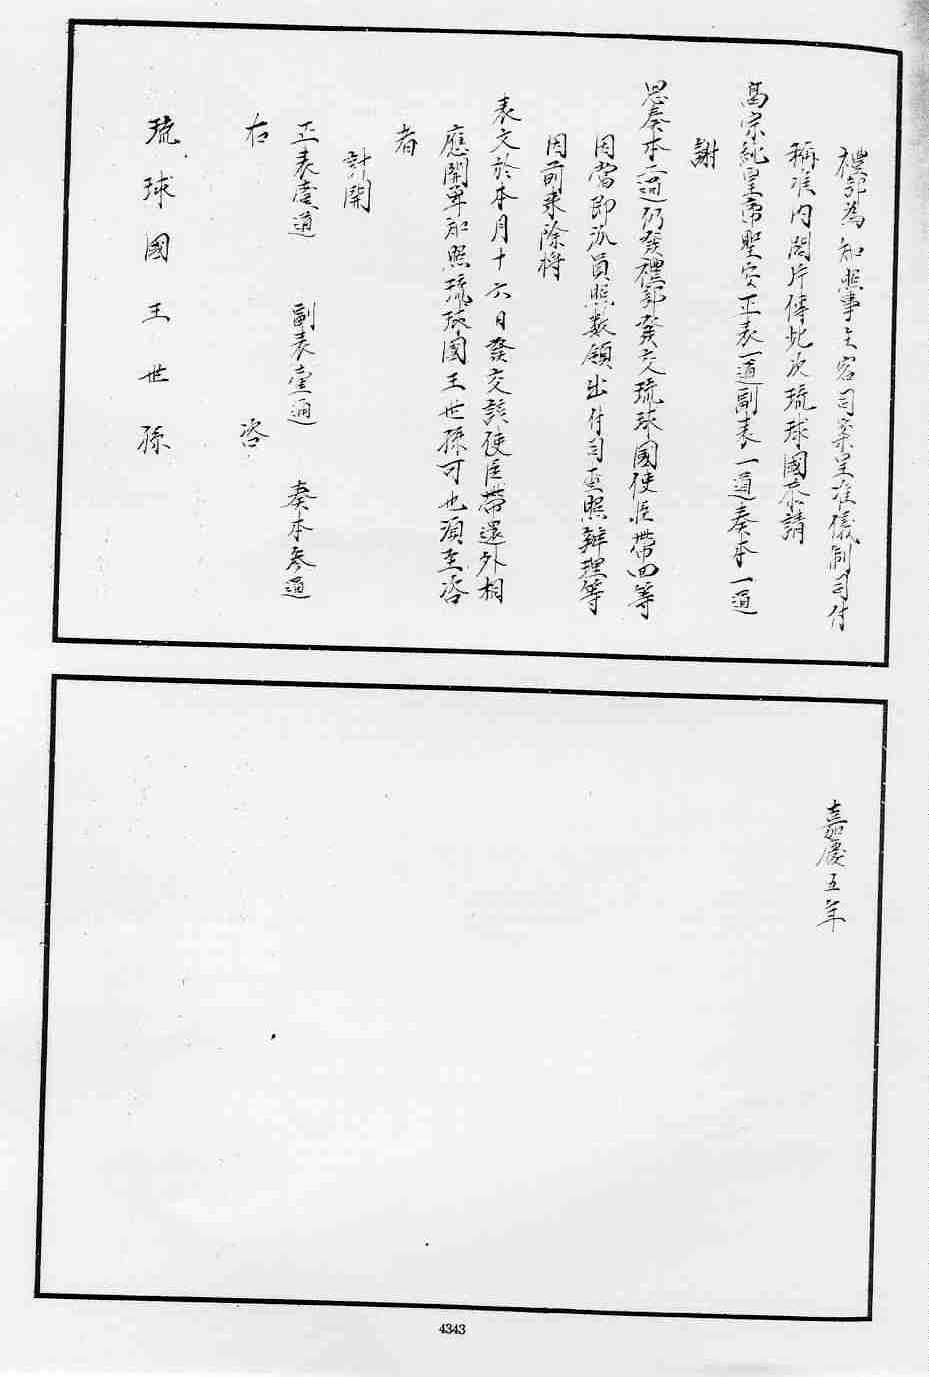 禮部為知照事主客司案呈准儀制司付
稱准内閣片傳此次琉球國恭請
高宗純皇帝聖安正表一道副表一通奏本一通
謝
恩奏本二通仍發禮部發交琉球國使臣帶回等
因當即派員照數領出付司查照辦理等
因前來除將
表文於本月十六日發交該使臣帶還外相
應開單知照琉球國王世孫可也須至咨
者
計開
正表壹通 副表壹通 奏本叁通
右 咨
琉球國王世孫
嘉慶五年
4343